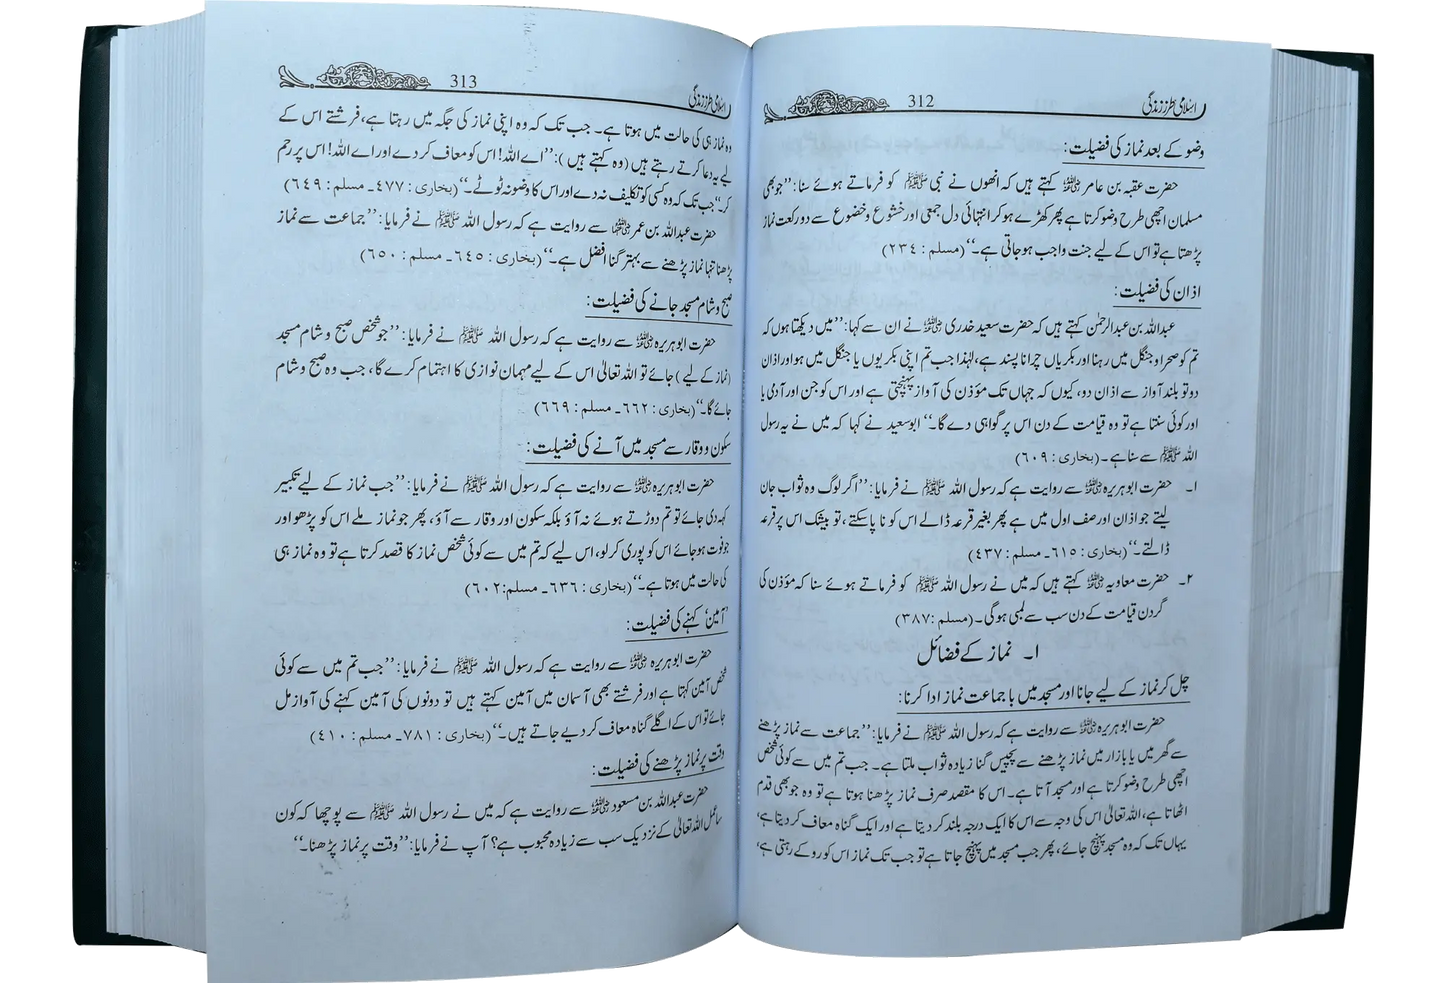 اسلامی طرز زندگی 312
وضو کے بعد نماز کی فضیلت:
حضرت عقبہ بن عامر رضی اللہ عنہ کہتے ہیں کہ انھوں نے نبی ﷺ کو فرماتے ہوئے سنا: ’’جو بھی
مسلمان اچھی طرح وضو کرتا ہے پھر کھڑے ہو کر انتہائی دل جمعی اور خشوع وخضوع سے دو رکعت نماز
پڑھتا ہے تو اس کے لیے جنت واجب ہو جاتی ہے۔‘‘ (مسلم : ۲۳۴)
اذان کی فضیلت:
عبداللہ بن عبدالرحمٰن کہتے ہیں کہ حضرت سعید خدری رضی اللہ عنہ نے ان سے کہا: ’’میں دیکھتا ہوں کہ
تم کو صحرا و جنگل میں رہنا اور بکریاں چرانا پسند ہے، لہٰذا جب تم اپنی بکریوں یا جنگل میں ہو اور اذان
دو تو بلند آواز سے اذان دو، کیوں کہ جہاں تک مؤذن کی آواز پہنچتی ہے اور اس کو جن اور آدمی یا
اور کوئی سنتا ہے تو وہ قیامت کے دن اس پر گواہی دے گا۔‘‘ ابو سعید نے کہا کہ میں نے یہ رسول
اللہ ﷺ سے سنا ہے۔ (بخاری : ۶۰۹)
۱۔ حضرت ابو ہریرہ رضی اللہ عنہ سے روایت ہے کہ رسول اللہ ﷺ نے فرمایا: ’’اگر لوگ وہ ثواب جان
لیتے جو اذان اور صف اول میں ہے پھر بغیر قرعہ ڈالے اس کو نا پاسکتے، تو بیشک اس پر قرعہ
ڈالتے۔‘‘ (بخاری : ۶۱۵۔ مسلم : ۴۳۷)
۲۔ حضرت معاویہ رضی اللہ عنہ کہتے ہیں کہ میں نے رسول اللہ ﷺ کو فرماتے ہوئے سنا کہ مؤذن کی
گردن قیامت کے دن سب سے لمبی ہوگی۔ (مسلم : ۳۸۷)
۱۔ نماز کے فضائل
چل کر نماز کے لیے جانا اور مسجد میں با جماعت نماز ادا کرنا:
حضرت ابو ہریرہ رضی اللہ عنہ سے روایت ہے کہ رسول اللہ ﷺ نے فرمایا: ’’جماعت سے نماز پڑھنے
سے گھر میں یا بازار میں نماز پڑھنے سے پچیس گنا زیادہ ثواب ملتا ہے۔ جب تم میں سے کوئی شخص
اچھی طرح وضو کرتا ہے اور مسجد آتا ہے۔ اس کا مقصد صرف نماز پڑھنا ہوتا ہے تو وہ جو بھی قدم
اٹھاتا ہے، اللہ تعالیٰ اس کی وجہ سے اس کا ایک درجہ بلند کر دیتا ہے اور ایک گناہ معاف کر دیتا ہے،
یہاں تک کہ وہ مسجد پہنچ جائے، پھر جب مسجد میں پہنچ جاتا ہے تو جب تک نماز اس کو روکے رہتی ہے،
اسلامی طرز زندگی 313
وہ نماز ہی کی حالت میں ہوتا ہے۔ جب تک کہ وہ اپنی نماز کی جگہ میں رہتا ہے، فرشتے اس کے
لیے یہ دعا کرتے رہتے ہیں (وہ کہتے ہیں): ’’اے اللہ! اس کو معاف کر دے اور اے اللہ! اس پر رحم
کر۔‘‘ جب تک کہ وہ کسی کو تکلیف نہ دے اور اس کا وضو نہ ٹوٹے۔‘‘ (بخاری : ۴۷۷۔ مسلم : ۶۴۹)
حضرت عبداللہ بن عمر رضی اللہ عنہما سے روایت ہے کہ رسول اللہ ﷺ نے فرمایا: ’’جماعت سے نماز
پڑھنا تنہا نماز پڑھنے سے بہتر گنا افضل ہے۔‘‘ (بخاری : ۶۴۵۔ مسلم : ۶۵۰)
صبح وشام مسجد جانے کی فضیلت:
حضرت ابو ہریرہ رضی اللہ عنہ سے روایت ہے کہ رسول اللہ ﷺ نے فرمایا: ’’جو شخص صبح و شام مسجد
(نماز کے لیے) جائے تو اللہ تعالیٰ اس کے لیے مہمان نوازی کا اہتمام کرے گا، جب وہ صبح وشام
جائے گا۔‘‘ (بخاری : ۶۶۲۔ مسلم : ۶۶۹)
سکون و وقار سے مسجد میں آنے کی فضیلت:
حضرت ابو ہریرہ رضی اللہ عنہ سے روایت ہے کہ رسول اللہ ﷺ نے فرمایا: ’’جب نماز کے لیے تکبیر
کہہ دی جائے تو تم دوڑتے ہوئے نہ آؤ بلکہ سکون اور وقار سے آؤ، پھر جو نماز ملے اس کو پڑھو اور
جو فوت ہو جائے اس کو پوری کر لو، اس لیے کہ تم میں سے کوئی شخص نماز کا قصد کرتا ہے تو وہ نماز ہی
کی حالت میں ہوتا ہے۔‘‘ (بخاری : ۶۳۶۔ مسلم:۶۰۲)
’آمین‘ کہنے کی فضیلت:
حضرت ابو ہریرہ رضی اللہ عنہ سے روایت ہے کہ رسول اللہ ﷺ نے فرمایا: ’’جب تم میں سے کوئی
شخص آمین کہتا ہے اور فرشتے بھی آسمان میں آمین کہتے ہیں تو دونوں کی آمین کہنے کی آواز مل
جائے تو اس کے اگلے گناہ معاف کر دیے جاتے ہیں۔‘‘ (بخاری : ۷۸۱۔ مسلم : ۴۱۰)
وقت پر نماز پڑھنے کی فضیلت:
حضرت عبداللہ بن مسعود رضی اللہ عنہ سے روایت ہے کہ میں نے رسول اللہ ﷺ سے پوچھا کہ کون
سا عمل اللہ تعالیٰ کے نزدیک سب سے زیادہ محبوب ہے؟ آپ نے فرمایا: ’’وقت پر نماز پڑھنا۔‘‘